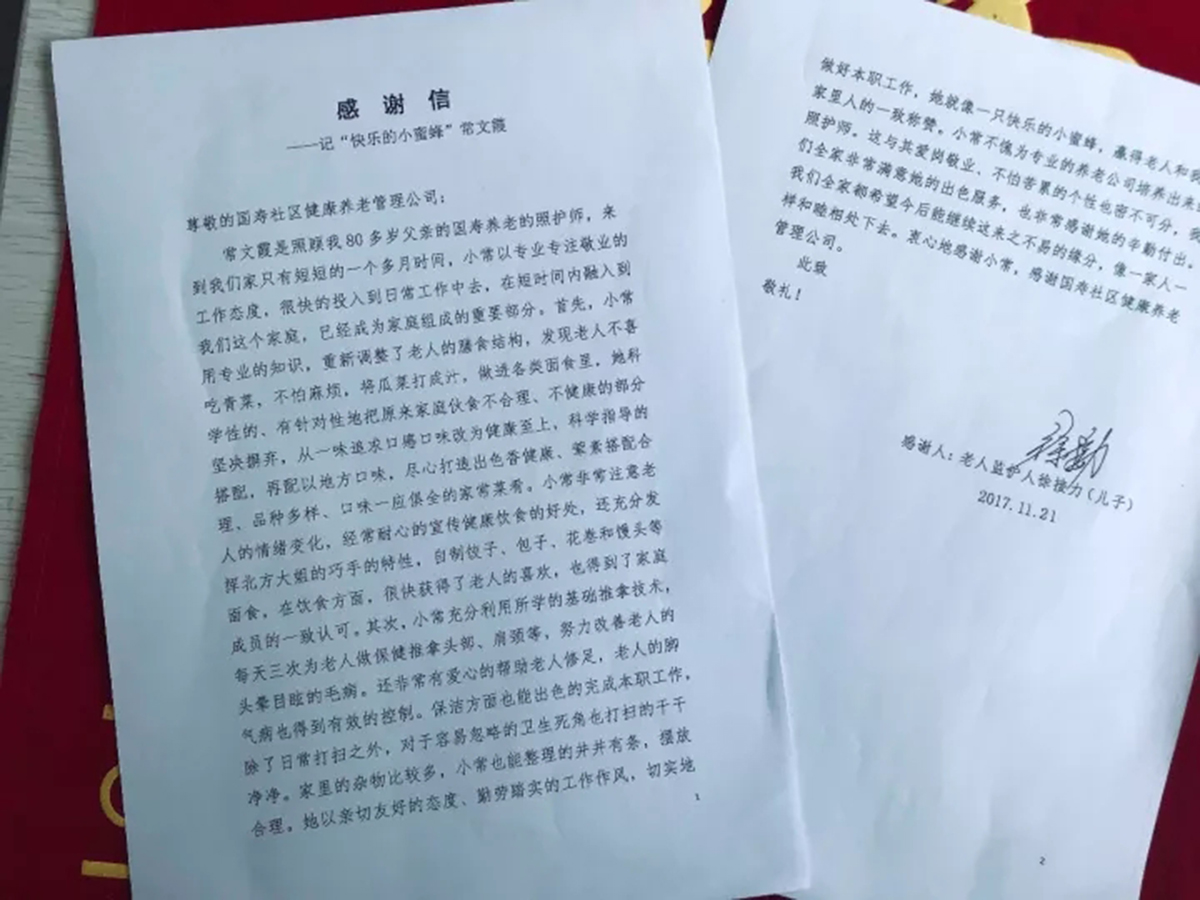 感 谢 信
——记“快乐的小蜜蜂”常文霞
尊敬的国寿社区健康养老管理公司：
常文霞是照顾我80多岁父亲的国寿养老的照护师，来
到我们家只有短短的一个多月时间，小常以专业专注敬业的
工作态度，很快的投入到日常工作中去，在短时间内融入到
我们这个家庭，已经成为家庭组成的重要部分。首先，小常
用专业的知识，重新调整了老人的膳食结构，发现老人不喜
吃青菜，不怕麻烦，将瓜菜打成汁，做进各类面食里，她科
学性的、有针对性地把原来家庭伙食不合理、不健康的部分
坚决摒弃，从一味追求口感口味改为健康至上，科学指导的
搭配，再配以地方口味，尽心打造出色香健康、荤素搭配合
理、品种多样、口味一应俱全的家常菜肴。小常非常注意老
人的情绪变化，经常耐心的宣传健康饮食的好处，还充分发
挥北方大姐的巧手的特性，自制饺子、包子、花卷和馒头等
面食，在饮食方面，很快获得了老人的喜欢，也得到了家庭
成员的一致认可。其次，小常充分利用所学的基础推拿技术，
每天三次为老人做保健推拿头部、肩颈等，努力改善老人的
头晕目眩的毛病。还非常有爱心的帮助老人修足，老人的脚
气病也得到有效的控制。保洁方面也能出色的完成本职工作，
除了日常打扫之外，对于容易忽略的卫生死角也打扫的干干
净净。家里的杂物比较多，小常也能整理的井井有条，摆放
合理。她以亲切友好的态度、勤劳踏实的工作作风，切实地
1
做好本职工作，她就像一只快乐的小蜜蜂，赢得老人和我
家里人的一致称赞。小常不愧为专业的养老公司培养出来
照护师。这与其爱岗敬业、不怕苦累的个性也密不可分，我
们全家非常满意她的出色服务，也非常感谢她的辛勤付出。
我们全家都希望今后能继续这来之不易的缘分，像一家人一
样和睦相处下去。衷心地感谢小常，感谢国寿社区健康养老
管理公司。
此致
敬礼！
感谢人：老人监护人徐接力（儿子）
2017.11.21
2